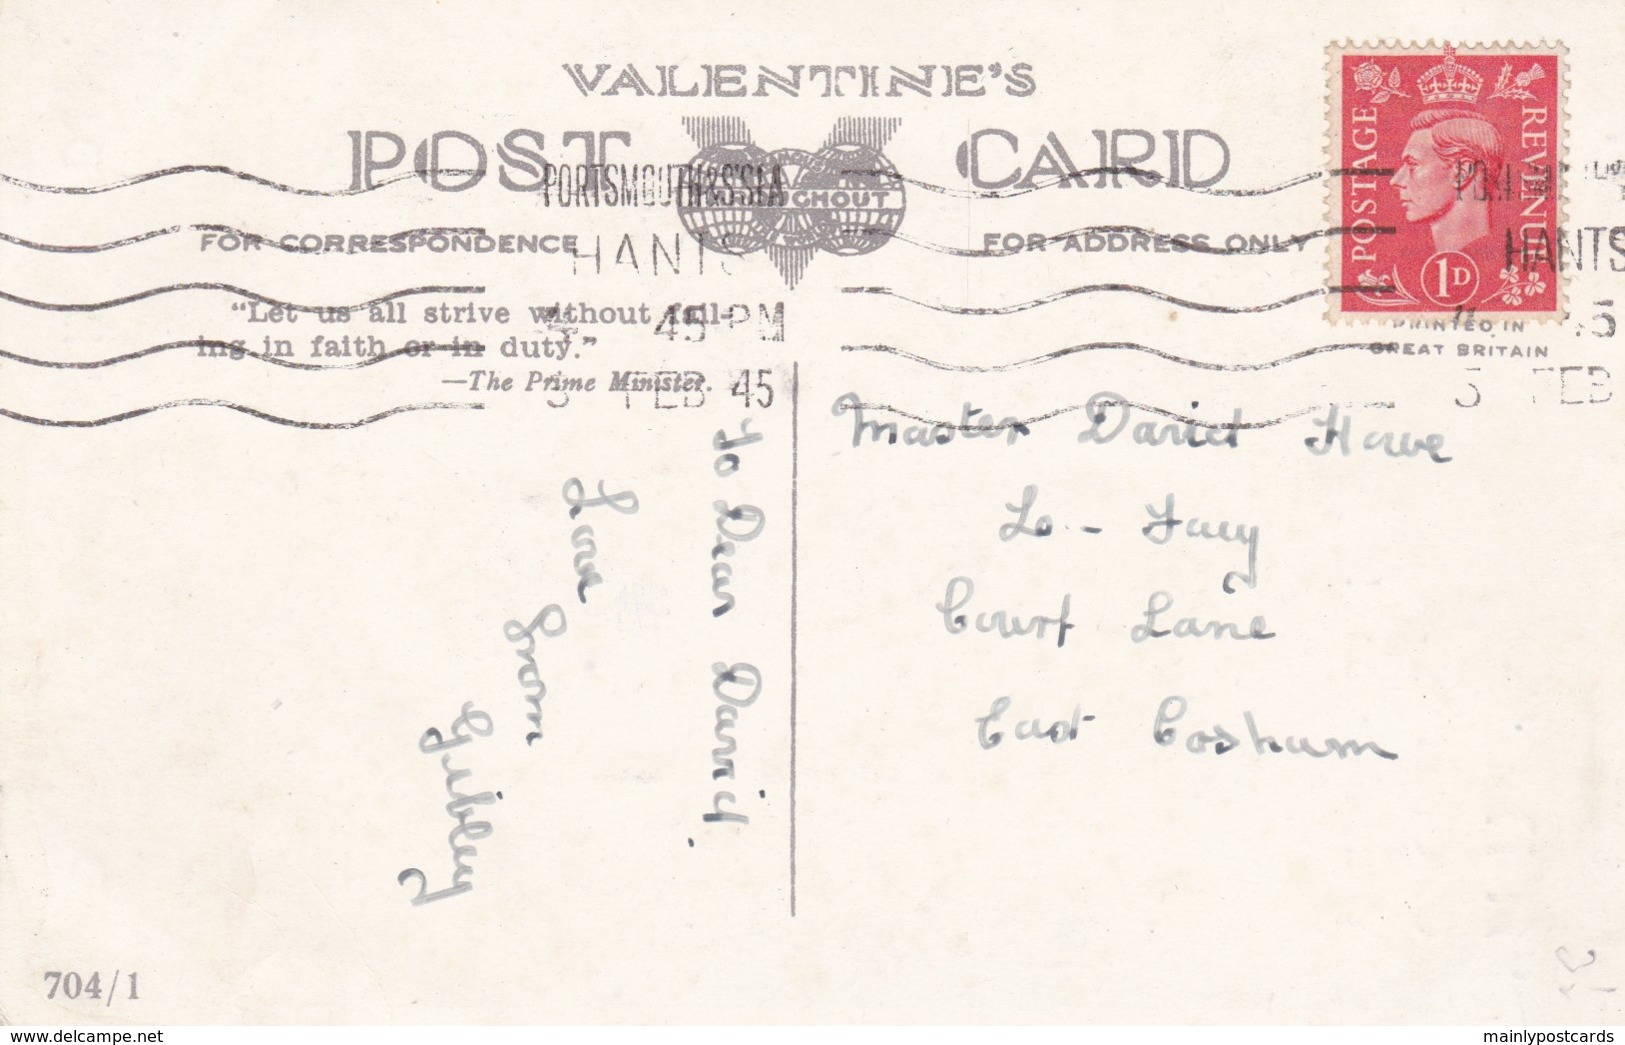 VALENTINE'S
POST CARD
PORTSMOUTH & S'SEA
HANTS
4 45 PM
5 FEB 45
FOR CORRESPONDENCE
FOR ADDRESS ONLY
"Let us all strive without fail-
ing in faith or in duty."
—The Prime Minister.
POSTAGE
REVENUE
1D
HANTS
5 FEB
PRINTED IN
GREAT BRITAIN
To Dear David,
Love From
Gibley
Master David Howe
Court Lane
East Cosham
704/1
delcampe.net
mainlypostcards